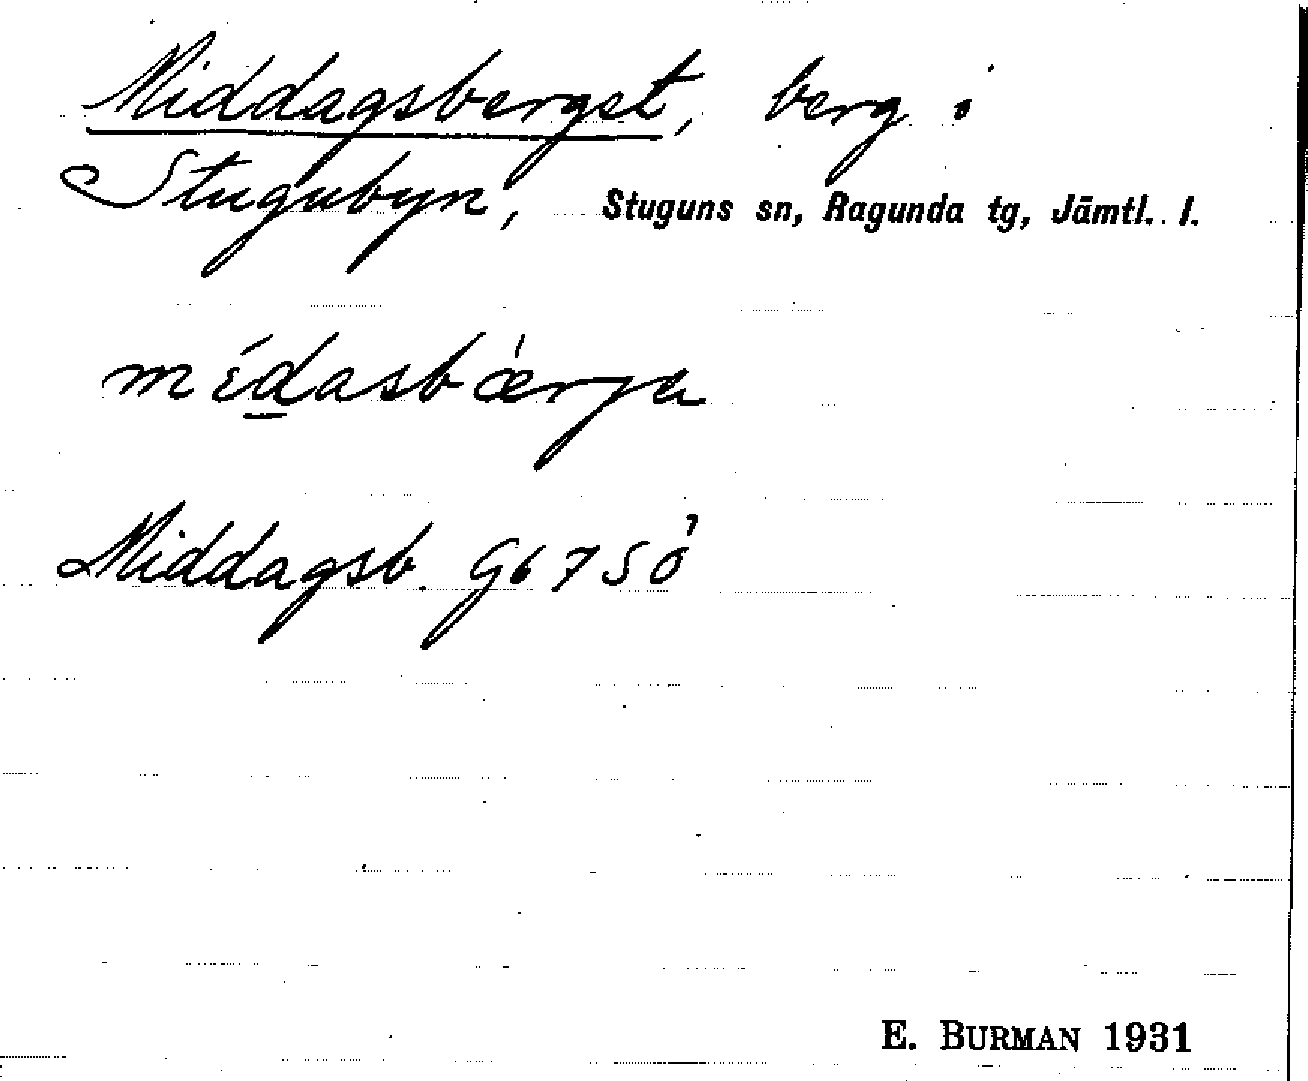 Middagsberget, berg i
Stugubyn, Stuguns sn, Ragunda tg, Jämtl. l.
mídasbǽrja
Middagsb. Gb 7 SÖ
E. BURMAN 1931